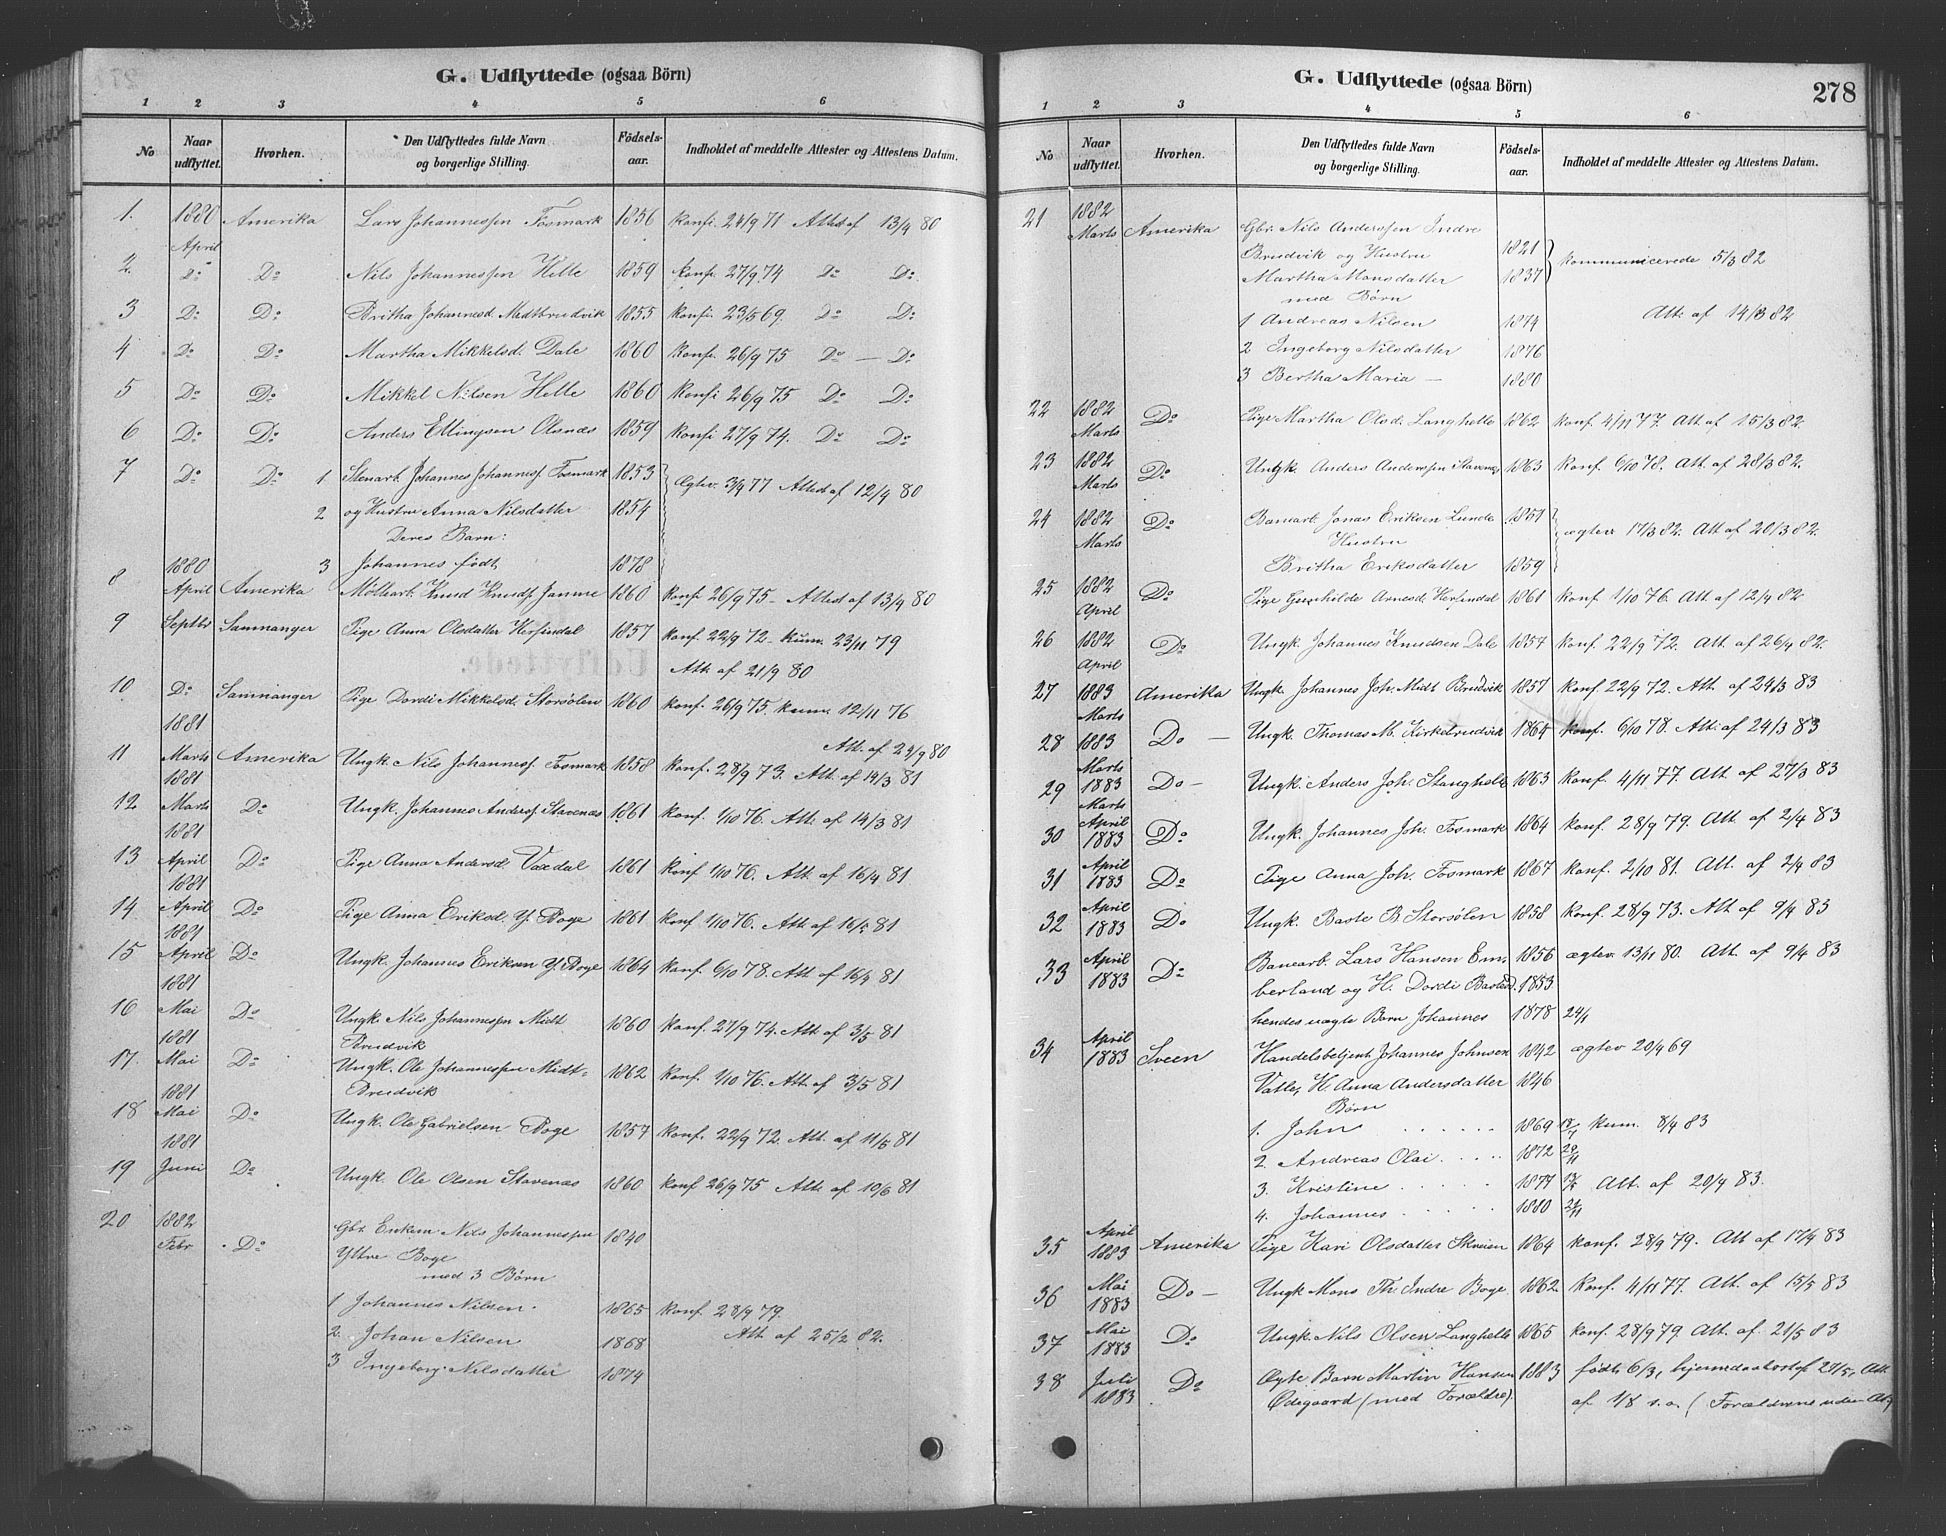 G. Udflyttede (ogsaa Börn)
1 2 3 4 5 6
No Naar udflyttet. Hvorhen. Den Udflyttedes fulde Navn og borgerlige Stilling. Födsels-aar. Indholdet af meddelte Attester og Attestens Datum.
1. 1880 April Amerika Lars Johannessen Fosmark 1856 Konfi. 24/9 71 Attest af 13/4 80
2. Do Do Nils Johannessen Helle 1859 Konfi. 27/9 74 Do Do
3 Do Do Britha Johannesd. Medtbrudvik 1855 Konfi. 23/5 69. Do Do
4 Do Do Martha Mikkelsd. Dale 1860 Konfi. 26/9 75 Do — Do
5 Do Do Mikkel Nilsen Helle 1860 Konfi 26/9 75 Do Do
6 Do Do Anders Ellingsen Olsnes 1859 Konfi 27/9 74. Do Do
7 Do Do 1 Stenarb. Johannes Johannesf. Fosmark 1853 Ægtev. 3/9 77 Attest af 12/4 80
2 og Hustru Anna Nilsdatter 1854
Deres Barn:
3 Johannes født 1878
8 1880 April Amerika Møllearb. Knud Knudf. Jamne 1860 Konfi 26/9 75 - Attest af 13/4 80
9 Septbr Samnanger Pige Anna Olsdatter Herfindal 1857 Konf. 22/9 72 - Kum. 23/11 79
Att. af 21/9 80
10 Do Samnanger Pige Dordi Mikkelsd. Storsølen 1860 Konf. 26/9 75. Kum. 12/11 76
Att. af 22/9 80
11 1881 Marts Amerika Ungk. Nils Johannesf. Fosmark 1858 Konf. 28/9 73. Att. af 14/3 81
12 1881 Marts Do Ungk. Johannes Andersf. Stavenes 1861 Konf. 1/10 76. Att. af 14/3 81
13 1881 April Do Pige Anna Andersd. Vaxdal 1861 Konf 1/10 76. Att. af 16/4 81
14 1881 April Do Pige Anna Eriksd. Y. Boge 1861 Konf 1/10 76. Att. af 16/5 81
15 1881 April Do Ungk. Johannes Eriksen Y. Boge 1864 Konf. 6/10 78. Att. af 16/4 81
16 Mai Do Ungk. Nils Johannessen Midt 1860 Konf. 27/9 74. Att. af 3/5 81
Brudvik
17. 1881 Mai Do Ungk. Ole Johannessen Midt- 1862 Konf. 1/10 76. Att. af 3/5 81
Brudvik
18 1881 Mai Do Ungk. Ole Gabrielsen Boge 1857 Konf. 22/9 72. Att. af 11/5 81
19 1881 Juni Do Ungk. Ole Olsen Stavenes 1860 Konf 26/9 75 Att. af 10/6 81
20 1882 Febr Do Gbr. Enkem. Nils Johannessen 1840
Ytre Boge
med 3 Børn
1 Johannes Nilsen. 1865 Konf. 28/9 79.
2. Johan Nilsen 1868 Att. af 25/2 82.
3 Ingeborg Nilsdatter 1874
G. Udflyttede (ogsaa Börn) 278
1 2 3 4 5 6
No Naar udflyttet. Hvorhen. Den Udflyttedes fulde Navn og borgerlige Stilling. Födsels-aar. Indholdet af meddelte Attester og Attestens Datum.
21 1882 Marts Amerika Gbr. Nils Anderssen Indre
Brudvik og Hustru 1821 Kommunicerede 5/3 82
Martha Monsdatter 1837
med Børn
1 Andreas Nilsen 1874 Att. af 14/3 82
2 Ingeborg Nilsdatter 1876
3 Bertha Maria — 1880
22 1882 Marts Do Pige Martha Olsd. Langhelle 1862 Konf. 4/11 77. Att. af 15/3 82.
23 1882 Marts Do Ungk. Anders Anderssen Stavenes 1863 Konf. 6/10 78. Att. af 28/3 82.
24 1882 Marts Do Banearb. Jonas Eriksen Lunde 1851 ægtev 17/3 82. Att. af 20/3 82.
Hustru
Britha Eriksdatter 1859
25 1882 April Do Pige Gunhilde Arnesd. Herfindal 1861 Konf. 1/10 76. Att. af 12/4 82
26 1882 April Do Ungk. Johannes Knudsen Dale 1857 Konf. 22/9 72. Att. af 26/4 82.
27 1883 Marts Amerika Ungk. Johannes Joh. Midt Brudvik 1857 Konf 22/9 72. Att. af 24/3 83
28 1883 Marts Do — Ungk. Thomas M. Kirkebrudvik 1864 Konf. 6/10 78. Att. af 24/3 83
29 1883 Marts Do — Ungk. Anders Joh. Stanghelle 1863 Konf. 4/11 77. Att. af 27/3 83
30 April 1883 Do Ungk. Johannes Joh. Fosmark 1864 Konf. 28/9 79. Att. af 2/4 83
31 April 1883 Do Pige Anna Joh. Fosmark 1867 Konf. 2/10 81. Att. af 2/4 83
32 April 1883 Do Ungk. Baste B. Storsølen 1858 Konf. 28/9 73. Att af 9/4 83
33 April 1883 Do Banearb. Lars Hansen Em- 1856 ægtev. 13/11 80. Att. af 9/4 83
berland og H. Dordi Bastesd. 1853
hendes uægte Barn Johannes 1878 24/1
34 April 1883 Sveen Handelsbetjent Johannes Johnsen 1842 ægtev 20/4 69
Valle, H. Anna Andersdatter 1846
Børn
1. John 1869 Kum. 8/4 83
2. Andreas Olai 1872
3. Kristine 1877 Att. af 20/4 83.
4. Johannes 1880
35 April 1883 Amerika Pige Kari Olsdatter Skreien 1864 Konf. 28/9 79. Att af 17/4 83
36 Mai 1883 Do — Ungk Mons Th. Indre Boge 1862. Konf. 4/11 77. Att. af 15/5 83
37 Mai 1883 Do Ungk. Nils Olsen Langhelle 1865 Konf. 28/9 79. Att. af 21/5 83
38 Juli 1883 Do Ægte Barn Martin Hansen 1883 født 6/3, hjemmedøbt 27/5, Att.
Ødegaard (med Forældre) af 1/8 s. a. (Forældrene uden Att)